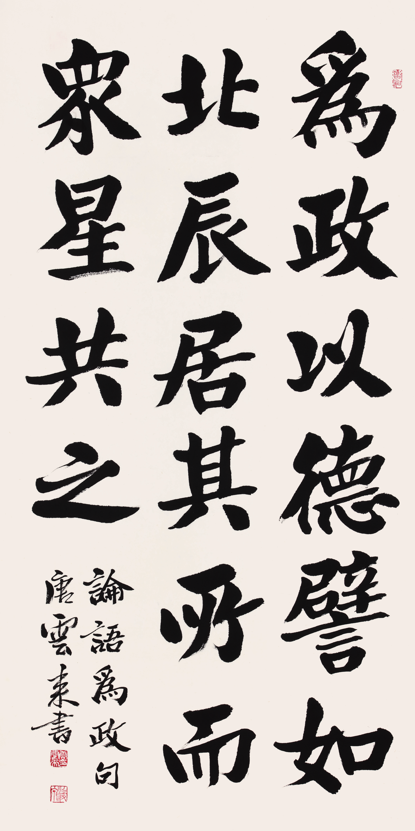 為政以德譬如
北辰居其所而
眾星共之
論語為政句
唐雲來書